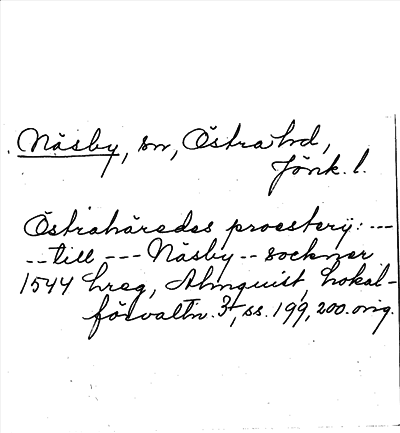 Näsby, sn, Östra hd,
Jönk. l.
Östrahäredes proesterij: ---
-- till --- Näsby -- sockner
1544 hreg, Almquist, Lokal-
förvaltn. 3:1, ss. 199, 200. orig.